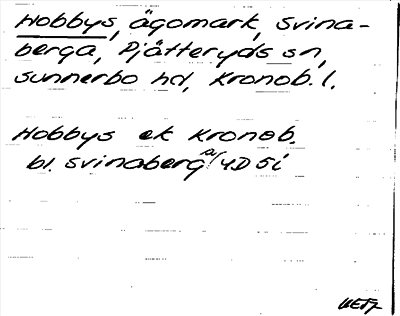 Hobbys, ägomark, Svina-
berga, Pjätteryds sn,
Sunnerbo hd, Kronob. l.
Hobbys ek Kronob.
bl. Svinaberga 4D 5i